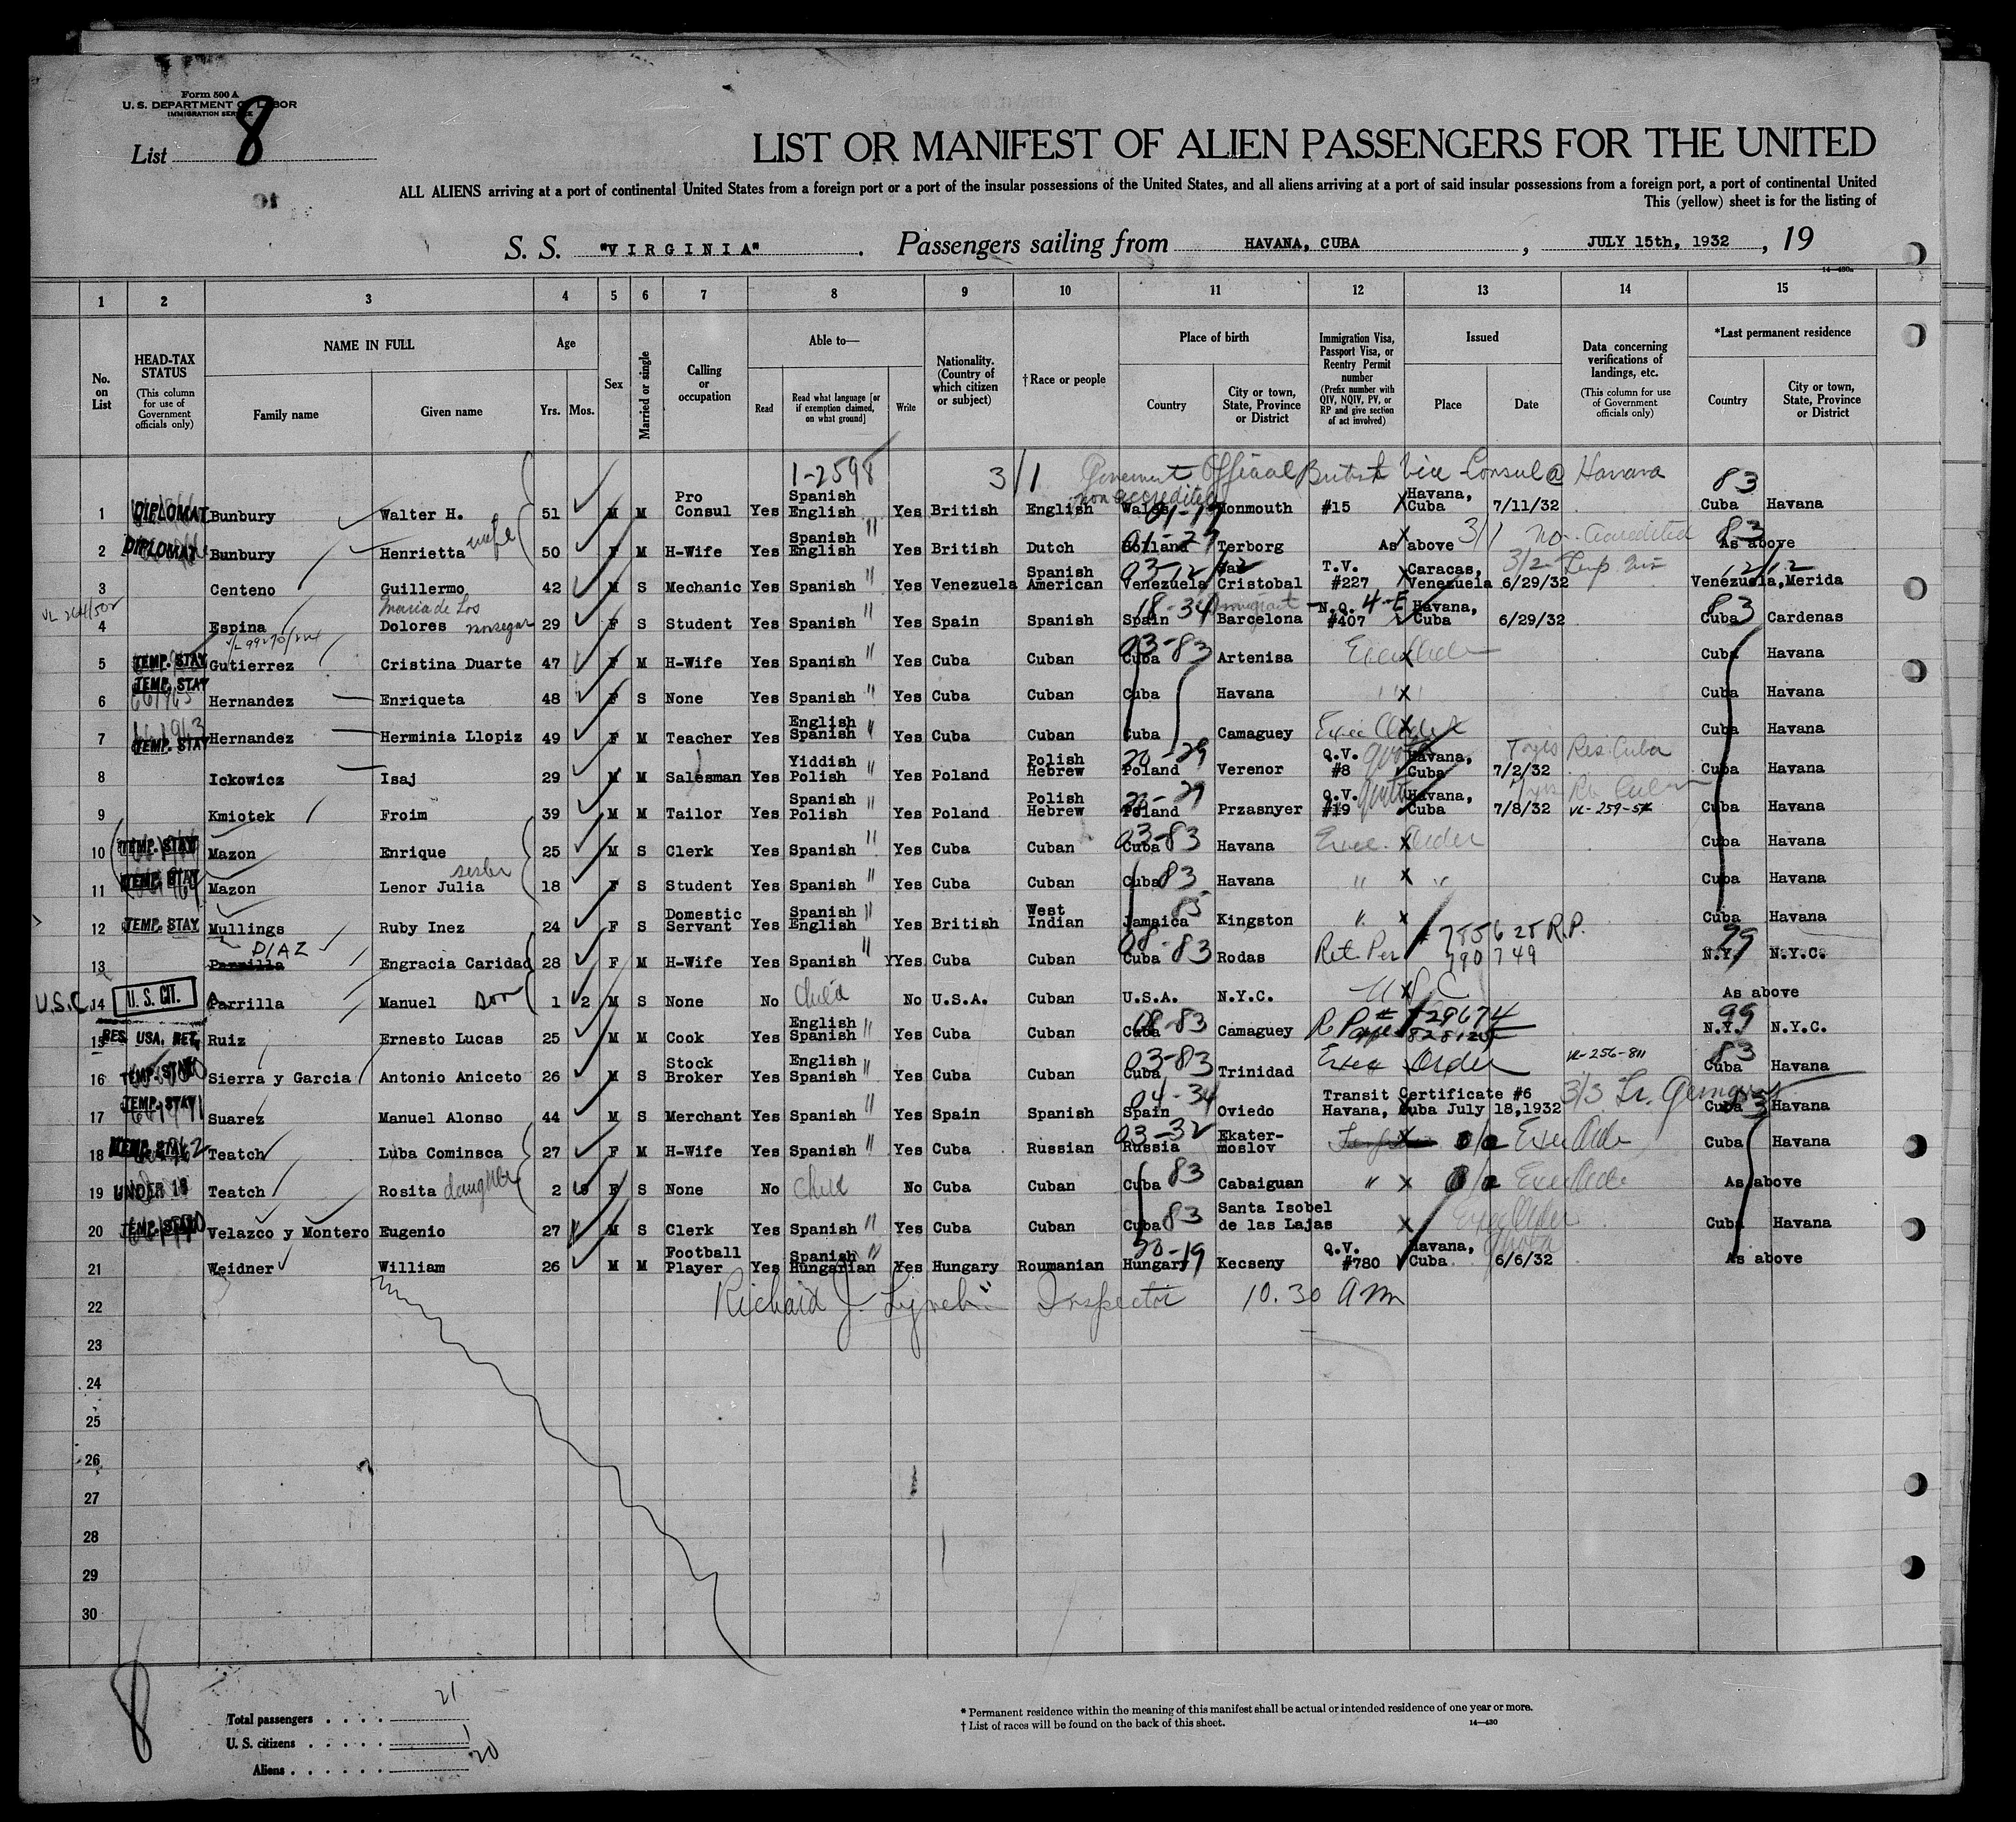 Form 500 A
U. S. DEPARTMENT OF LABOR
IMMIGRATION SERVICE
List 8
LIST OR MANIFEST OF ALIEN PASSENGERS FOR THE UNITED
ALL ALIENS arriving at a port of continental United States from a foreign port or a port of the insular possessions of the United States, and all aliens arriving at a port of said insular possessions from a foreign port, a port of continental United
This (yellow) sheet is for the listing of
S. S. "VIRGINIA". Passengers sailing from HAVANA, CUBA, JULY 15th, 1932, 19
14—430a
1 2 3 4 5 6 7 8 9 10 11 12 13 14 15
No. on List
HEAD-TAX STATUS (This column for use of Government officials only)
NAME IN FULL Family name Given name
Age Yrs. Mos.
Sex
Married or single
Calling or occupation
Able to— Read Read what language [or if exemption claimed, on what ground] Write
Nationality. (Country of which citizen or subject)
†Race or people
Place of birth Country City or town, State, Province or District
Immigration Visa, Passport Visa, or Reentry Permit number (Prefix number with QIV, NQIV, PV, or RP and give section of act involved)
Issued Place Date
Data concerning verifications of landings, etc. (This column for use of Government officials only)
*Last permanent residence Country City or town, State, Province or District
1-2598 3/1 Government Official British Vice Consul @ Havana 83
non accredited
1 DIPLOMAT Bunbury Walter H. 51 M M Pro Consul Yes Spanish English Yes British English Wales Monmouth #15 Havana, Cuba 7/11/32 Cuba Havana
2 DIPLOMAT Bunbury Henrietta wife 50 F M H-Wife Yes Spanish English " Yes British Dutch Holland 01-27 Terborg As above 3/1 83 As above
3 Centeno Guillermo 42 M S Mechanic Yes Spanish " Yes Venezuela Spanish American Venezuela 03-12 San Cristobal T.V. #227 Caracas, Venezuela 6/29/32 3/2 Venezuela, Merida
VL 264/502
4 Espina Maria de Los Dolores 29 F S Student Yes Spanish " Yes Spain Spanish Spain 18-34 Barcelona N.Q. #407 4-E Havana, Cuba 6/29/32 Cuba 83 Cardenas
5 TEMP. STAY Gutierrez Cristina Duarte 47 F M H-Wife Yes Spanish " Yes Cuba Cuban Cuba 03-83 Artenisa Cuba Havana
6 TEMP. STAY Hernandez Enriqueta 48 F S None Yes Spanish " Yes Cuba Cuban Cuba Havana Cuba Havana
7 TEMP. STAY Hernandez Herminia Llopiz 49 F M Teacher Yes English Spanish " Yes Cuba Cuban Cuba Camaguey Cuba Havana
8 Ickowicz Isaj 29 M M Salesman Yes Yiddish Polish " Yes Poland Polish Hebrew Poland 20-29 Verenor Q.V. #8 quota Havana, Cuba 7/2/32 Res. Cuba Cuba Havana
9 Kmiotek Froim 39 M M Tailor Yes Spanish Polish " Yes Poland Polish Hebrew Poland Przasnyer Q.V. #19 quota Havana, Cuba 7/8/32 Cuba Havana
10 TEMP. STAY Mazon Enrique 25 M S Clerk Yes Spanish " Yes Cuba Cuban Cuba 03-83 Havana Exec. Order Cuba Havana
11 TEMP. STAY Mazon Lenor Julia sister 18 F S Student Yes Spanish " Yes Cuba Cuban Cuba 83 Havana " " Cuba Havana
12 TEMP. STAY Mullings Ruby Inez 24 F S Domestic Servant Yes Spanish English " Yes British West Indian Jamaica 85 Kingston " Cuba Havana
13 DIAZ Parrilla Engracia Caridad 28 F M H-Wife Yes Spanish " YYes Cuba Cuban Cuba 08-83 Rodas Ret Per 790749 N.Y. 99 N.Y.C.
U.S.C. 14 U. S. CIT. Parrilla Manuel son 1 2 M S None No Child No U.S.A. Cuban U.S.A. N.Y.C. U S C As above
15 RES USA. RET. Ruiz Ernesto Lucas 25 M M Cook Yes English Spanish " Yes Cuba Cuban Cuba 08-83 Camaguey N.Y. 99 N.Y.C.
16 TEMP. STAY Sierra y Garcia Antonio Aniceto 26 M S Stock Broker Yes English Spanish " Yes Cuba Cuban Cuba 03-83 Trinidad Exec Order VL-256-811 Cuba 83 Havana
17 TEMP. STAY Suarez Manuel Alonso 44 M S Merchant Yes Spanish " Yes Spain Spanish Spain 04-34 Oviedo Transit Certificate #6 Havana, Cuba July 18,1932 3/3 Cuba Havana
18 TEMP. STAY Teatch Luba Cominsca 27 F M H-Wife Yes Spanish " Yes Cuba Russian Russia 03-32 Ekater-moslov Cuba Havana
19 UNDER 16 Teatch Rosita daughter 2 F S None No Child No Cuba Cuban Cuba 83 Cabaiguan " As above
20 TEMP. STAY Velazco y Montero Eugenio 27 M S Clerk Yes Spanish " Yes Cuba Cuban Cuba 83 Santa Isobel de las Lajas Cuba Havana
21 Weidner William 26 M M Football Player Yes Spanish Hungarian " Yes Hungary Roumanian Hungary 20-19 Kecseny Q.V. #780 Havana, Cuba 6/6/32 quota As above
22 Richard J. Lynch Inspector 10.30 am
23
24
25
26
27
28
29
30
8
Total passengers . . . . 21
U. S. citizens . . . . . 1
Aliens . . . . . . 20
* Permanent residence within the meaning of this manifest shall be actual or intended residence of one year or more.
† List of races will be found on the back of this sheet.
14—430